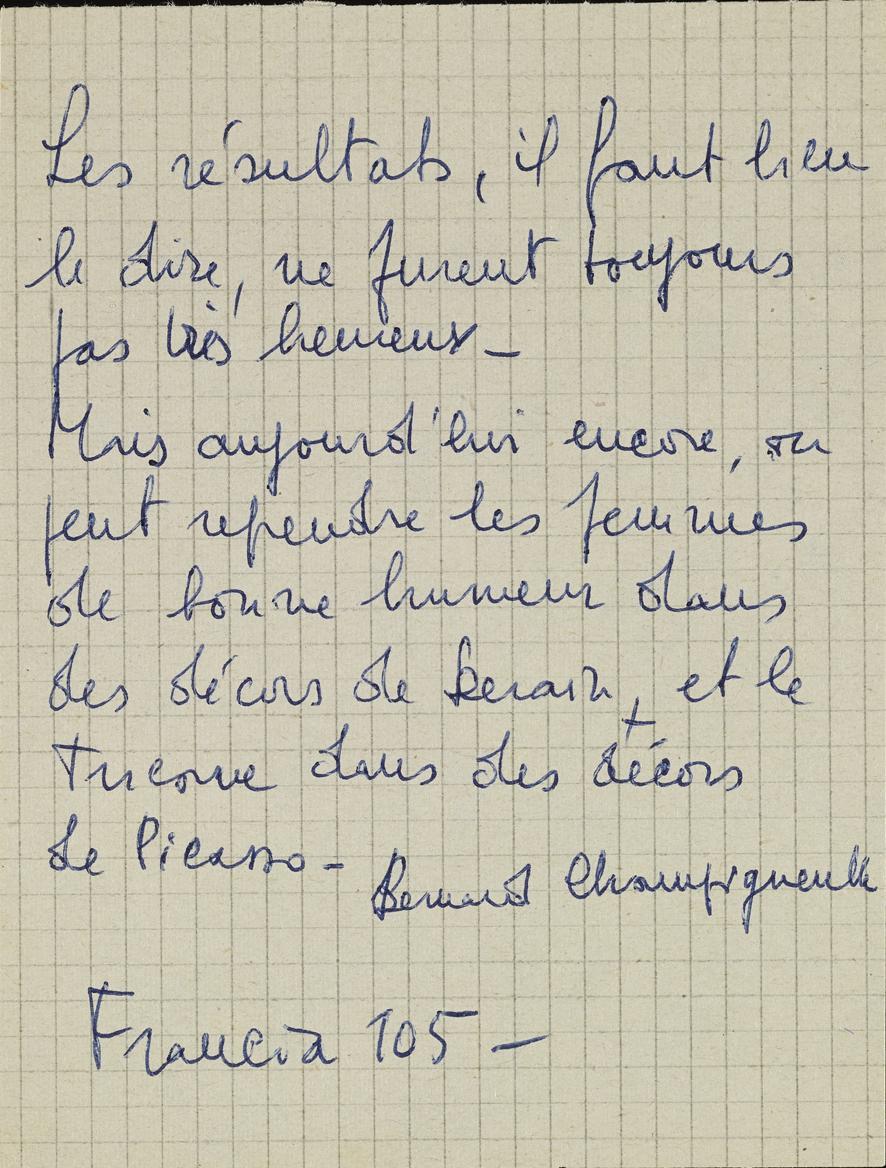 Les résultats, il faut bien
le dire, ne furent toujours
pas très heureux –
Mais aujourd'hui encore, on
peut reprendre les femmes
de bonne humeur dans
des décors de Derain, et le
Tricorne dans des décors
de Picasso – Bernard Champigneulle
Francia 105 –